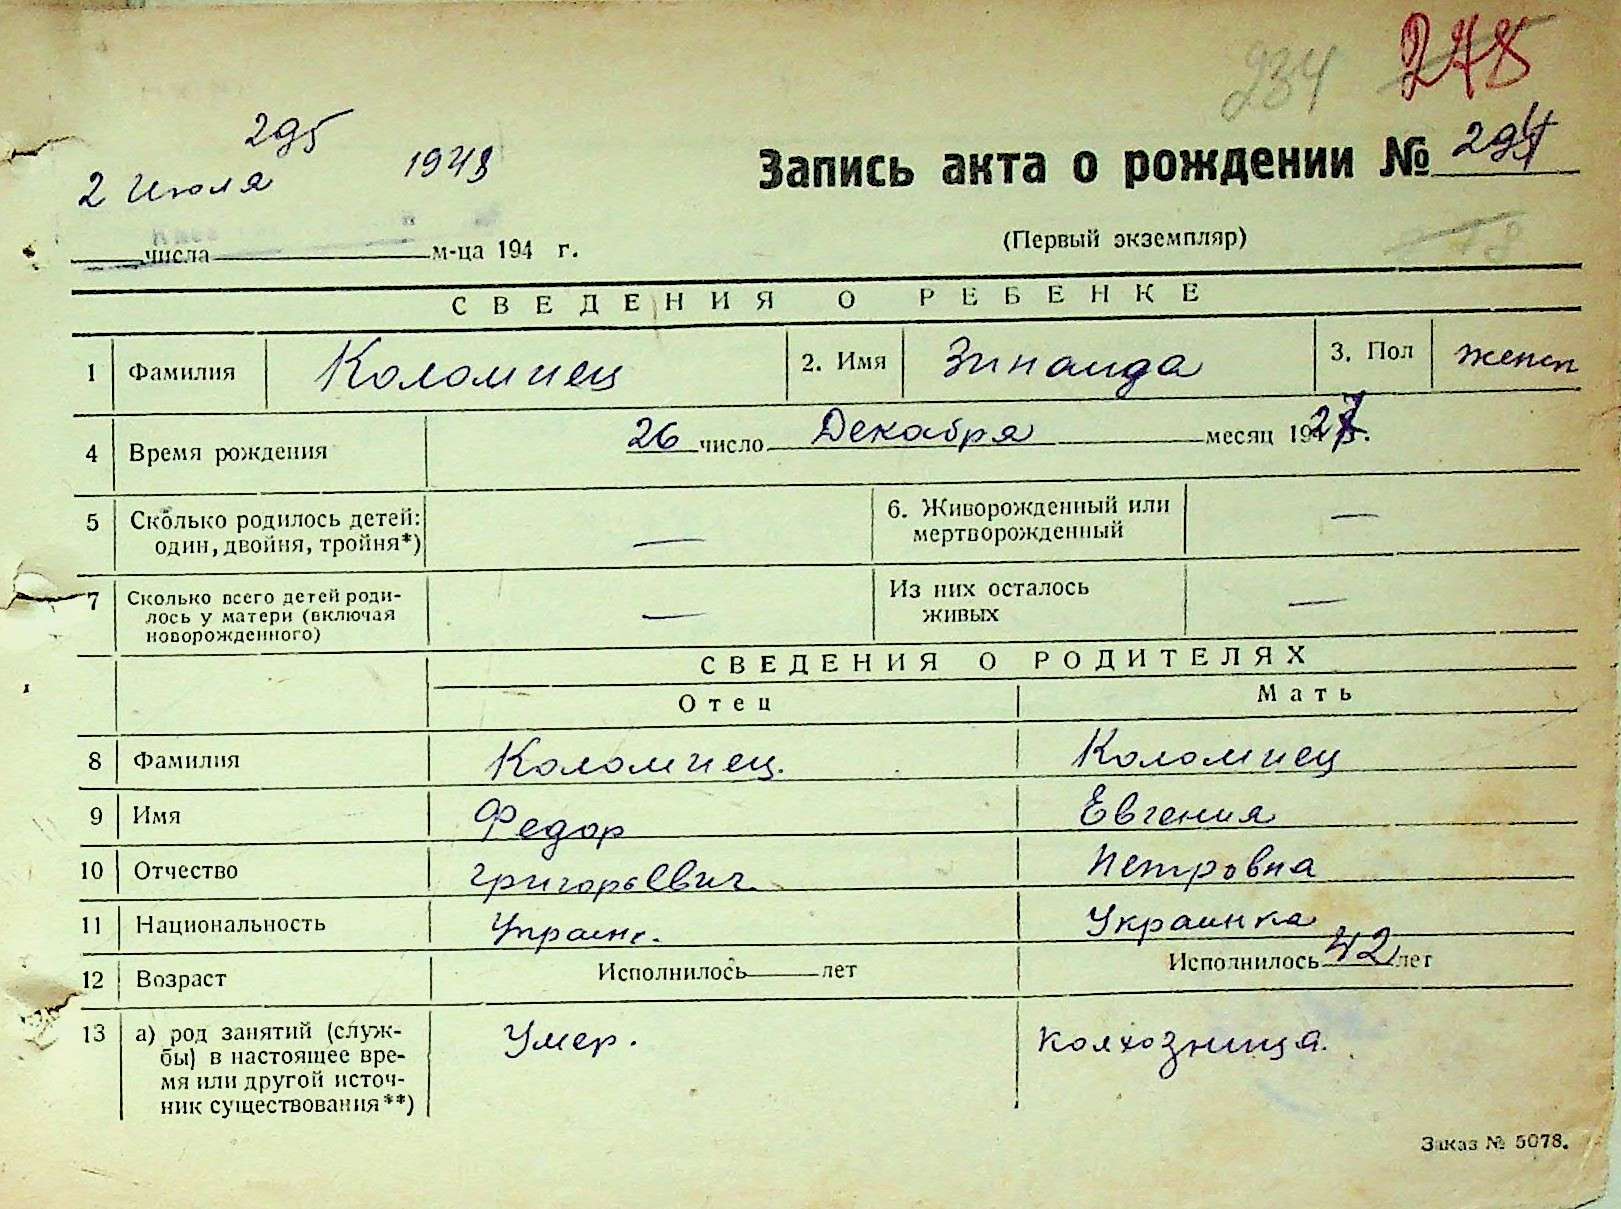 234 278
295
2 Июля 1943
Запись акта о рождении № 294
числа м-ца 194 г.
(Первый экземпляр)
СВЕДЕНИЯ О РЕБЕНКЕ
1 Фамилия Коломиец 2. Имя Зинаида 3. Пол женск
4 Время рождения 26 число Декабря месяц 1927.
5 Сколько родилось детей: 6. Живорожденный или
один, двойня, тройня*) — мертворожденный —
7 Сколько всего детей роди- Из них осталось
лось у матери (включая — живых —
новорожденного)
СВЕДЕНИЯ О РОДИТЕЛЯХ
Отец Мать
8 Фамилия Коломиец. Коломиец
9 Имя Федор Евгения
10 Отчество Григорьевич Петровна
11 Национальность Украин. Украинка
12 Возраст Исполнилось лет Исполнилось 42 лет
13 а) род занятий (служ- Умер. Колхозница.
бы) в настоящее вре-
мя или другой источ-
ник существования**)
Заказ № 5078.